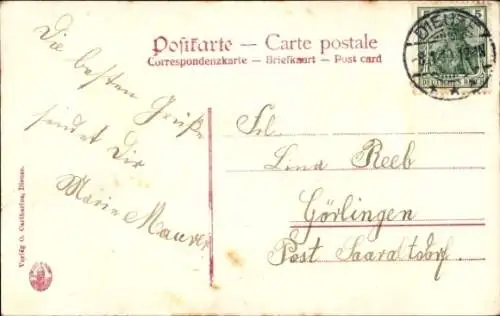 Postkarte — Carte postale
Correspondenzkarte — Briefkaart — Post card
5
DIEUZE
Die besten Grüße
sendet Dir
Marie Maurer
Frl.
Lina Reeb
Görlingen
Post Saaraltdorf.
Verlag O. Cuthariva, Dieuze.